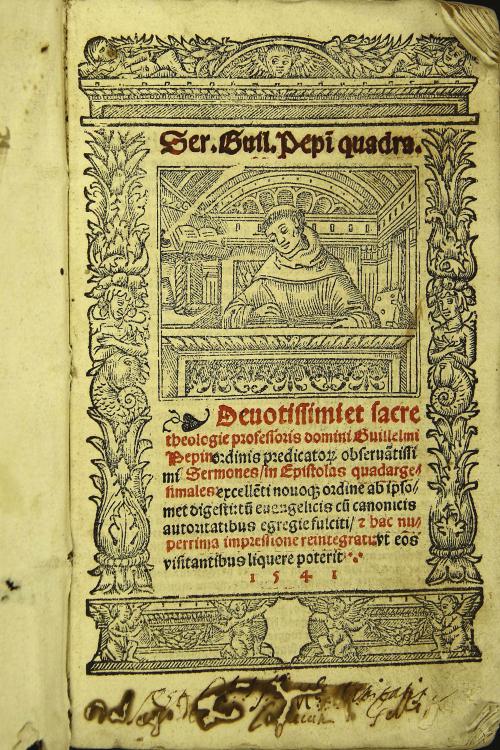 Ser. Guil. Pepī quadra.
Devotissimi et sacre
theologie professoris domini Guillelmi
Pepin ordinis predicatoꝝ observātissi
mi Sermones/in Epistolas quadarge/
simales excellēti novoqꝫ ordine ab ipso/
met digesti cū euangelicis cū canonicis
autoritatibus egregie fulciti/ ⁊ hac nu/
perrima impressione reintegrati: vt eos
visitantibus liquere poterit
1541